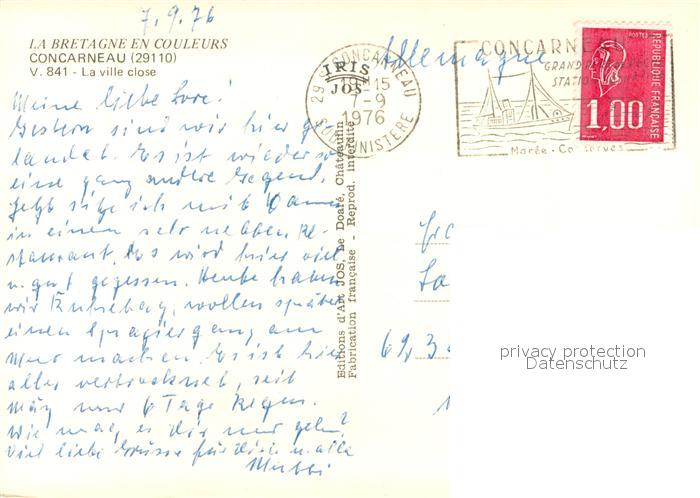 7.9.76
LA BRETAGNE EN COULEURS
CONCARNEAU (29110)
V. 841 - La ville close
Meine liebe Lore!
Gestern sind wir hier ge-
landet. Es ist wieder so
eine ganz andere Gegend.
Jetzt sitze ich mit
in einem sehr netten Re-
staurant. Es wird hier viel
u. gut gegessen. Heute haben
wir Ruhetag, wollen später
einen Spaziergang am
Meer machen. Es ist hier
alles vertrocknet, seit
März nur 6 Tage Regen.
Wie mag es Dir nur gehn?
Viel liebe Grüsse für Dich u. alle
Allemagne
IRIS
JOS
29 CONCARNEAU
19H15
7-9
1976
FINISTERE
CONCARNE
GRAND
STATIO
Marée - Conserves
POSTES
1,00
REPUBLIQUE FRANÇAISE
Editions d'Art JOS, Le Doaré, Châteaulin
Fabrication française - Reprod. interdite
privacy protection
Datenschutz